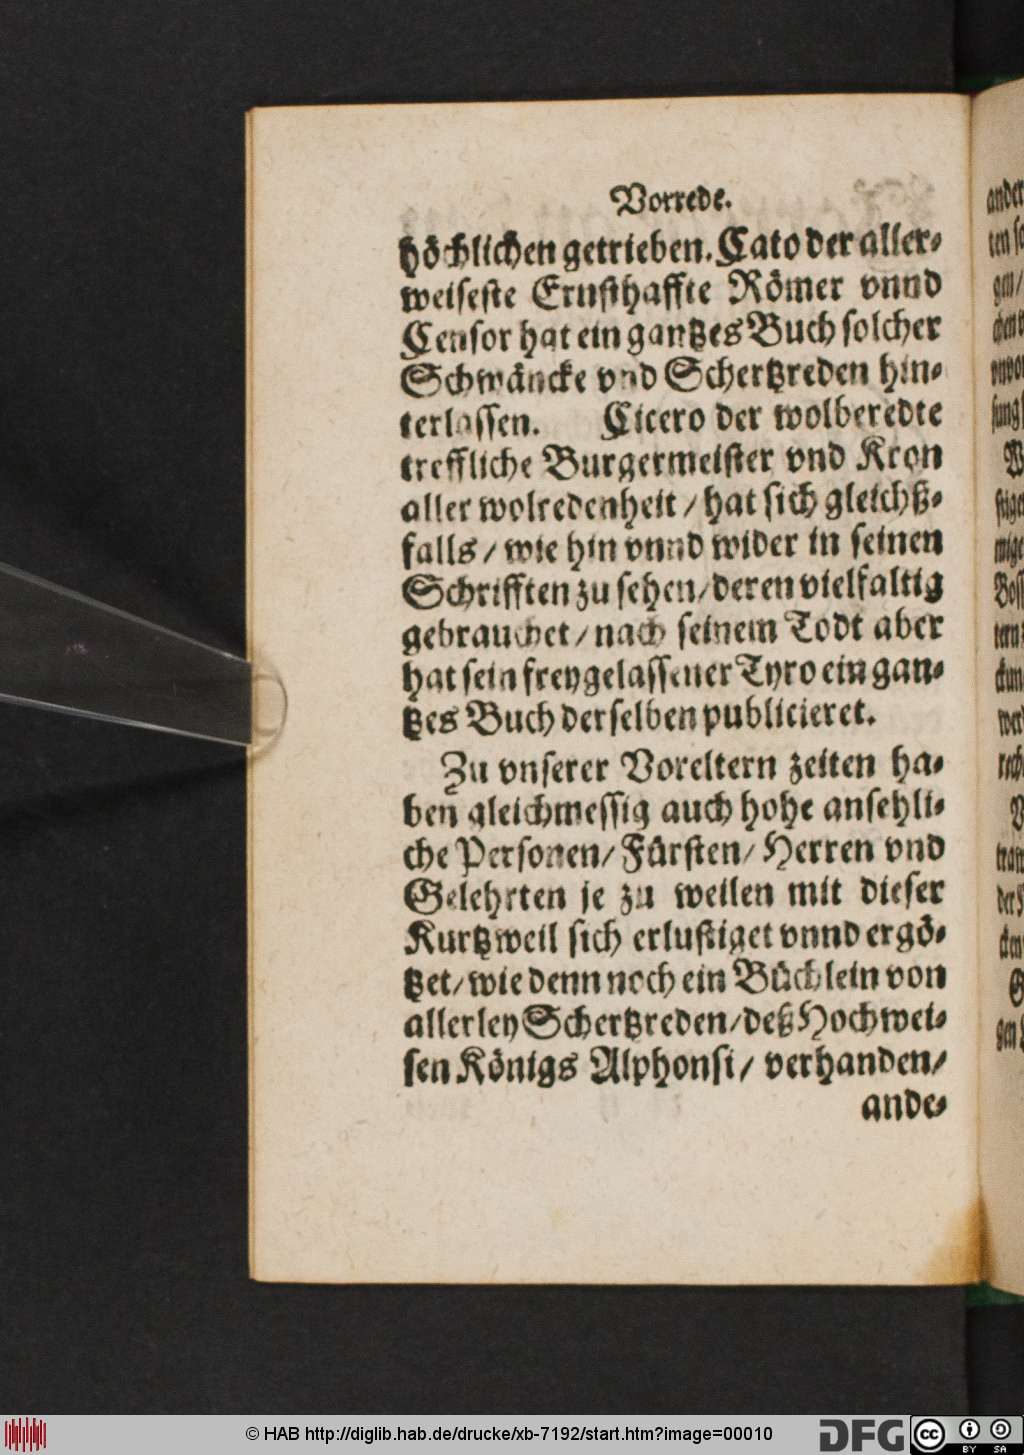 Vorrede.
höchlichen getrieben. Cato der aller-
weiseste Ernsthaffte Römer vnnd
Censor hat ein gantzes Buch solcher
Schwäncke vnd Schertzreden hin-
terlassen. Cicero der wolberedte
treffliche Burgermeister vnd Kron
aller wolredenheit / hat sich gleichß-
falls / wie hin vnnd wider in seinen
Schrifften zu sehen / deren vielfaltig
gebrauchet / nach seinem Todt aber
hat sein freygelassener Tyro ein gan-
tzes Buch derselben publicieret.
Zu vnserer Voreltern zeiten ha-
ben gleichmessig auch hohe ansehli-
che Personen / Fürsten / Herren vnd
Gelehrten je zu weilen mit dieser
Kurtzweil sich erlustiget vnnd ergö-
tzet / wie denn noch ein Büchlein von
allerley Schertzreden / deß Hochwei-
sen Königs Alphonsi / verhanden /
ande-
© HAB http://diglib.hab.de/drucke/xb-7192/start.htm?image=00010
DFG
cc
BY SA